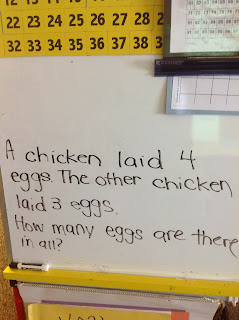 22 23 24 25 26 27 28 2
32 33 34 35 36 37 38 3
A chicken laid 4
eggs. The other chicken
laid 3 eggs.
How many eggs are there
in all?